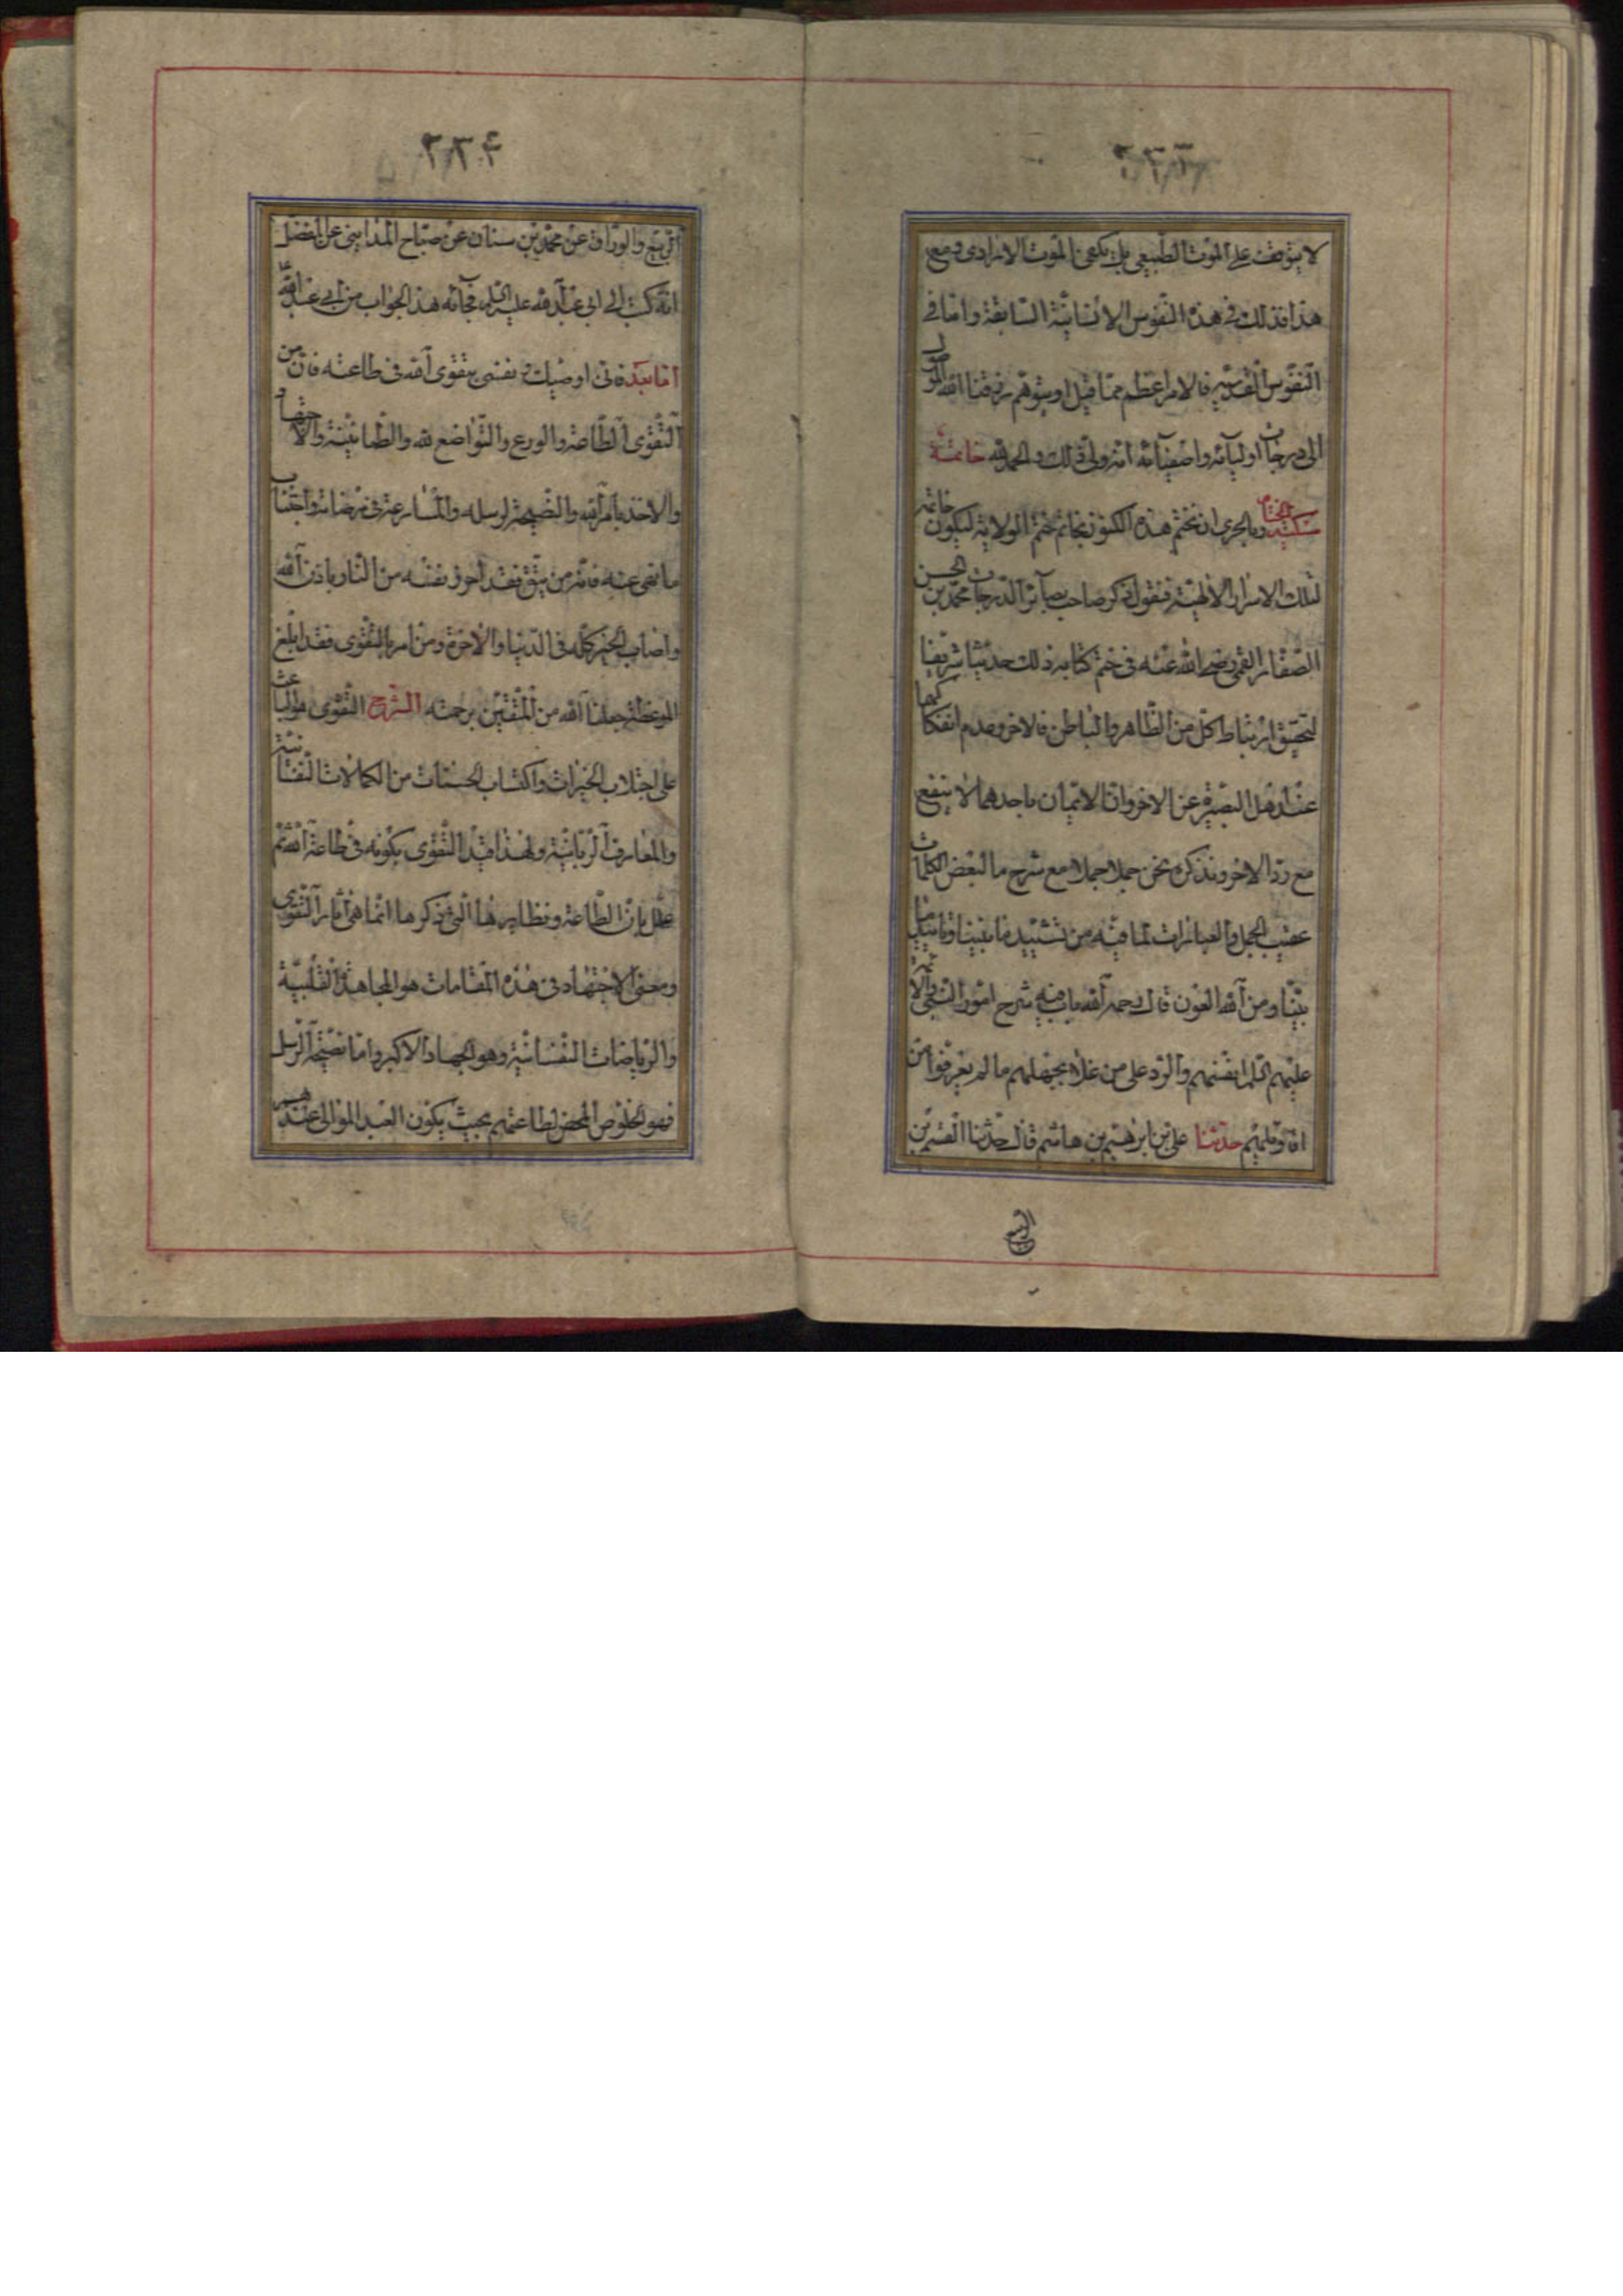 لا يتوقف على الموت الطبيعي بل يكفي الموت الارادي ومع
هذا فذلك في هذه النفوس الانسانية السابقة واما في
النفوس القدسية فالامر اعظم مما قيل او يتوهم رزقنا الله الوصول
الى درجات اوليائه واصفيائه انه ولي ذلك والحمد لله خاتمة
وبالحري ان نختم هذه الكنوز بخاتم ختم الولاية ليكون خاتمة
لتلك الاسرار الالهية فنقول ذكر صاحب بصائر الدرجات محمد بن الحسن
الصفار القمي رضي الله عنه في ختم كتابه ذلك حديثا شريفا
لتحقيق ارتباط كل من الظاهر والباطن بالاخر وعدم انفكاكهما
عند اهل البصيرة عن الاخر وان الايمان باحدهما لا ينفع
مع رد الاخر ونذكره نحن جملا جملا مع شرح ما لبعض الكلمات
عقيب الجمل والعبارات لما فيه من تشييد ما بنينا وتاسيس ما
بينا ومن الله العون قال رحمه الله باب فيه شرح امور النبي والائمة
عليهم السلم انفسهم والرد على من غلا بجهلهم ما لم يعرفوا من
اقاويلهم حدثنا علي بن ابرهيم بن هاشم قال حدثنا القسم بن
الربيع
٢٣٤
الربيع والوراق عن محمد بن سنان عن صباح المدايني عن المفضل
انه كتب الى ابي عبد الله عليه السلم فجائه هذ الجواب من ابي عبد الله
اما بعد فاني اوصيك ونفسي بتقوى الله في طاعته فان من
التقوى الطاعة والورع والتواضع لله والطمانينة والاجتهاد
والاخذ بامر الله والنصيحة لرسله والمسارعة في مرضاته واجتناب
ما نهى عنه فانه من يتق فقد احرز نفسه من النار باذن الله
واصاب الخير كله في الدنيا والاخرة ومن امر بالتقوى فقد ابلغ
الموعظة جعلنا الله من المتقين برحمته الشرح التقوى هو الباعث
على اجتلاب الخيرات واكتساب الحسنات من الكمالات النفسانية
والمعارف الربانية ولهذا قيد التقوى بكونه في طاعة الله ثم
علل بان الطاعة ونظايرها التي ذكرها انما هي اثار التقوى
ومعنى الاجتهاد في هذه المقامات هو المجاهدة القلبية
والرياضات النفسانية وهو الجهاد الاكبر واما نصيحة الرسل
فهو الخلوص المحض لطاعتهم بحيث يكون العبد الموالي عندهم